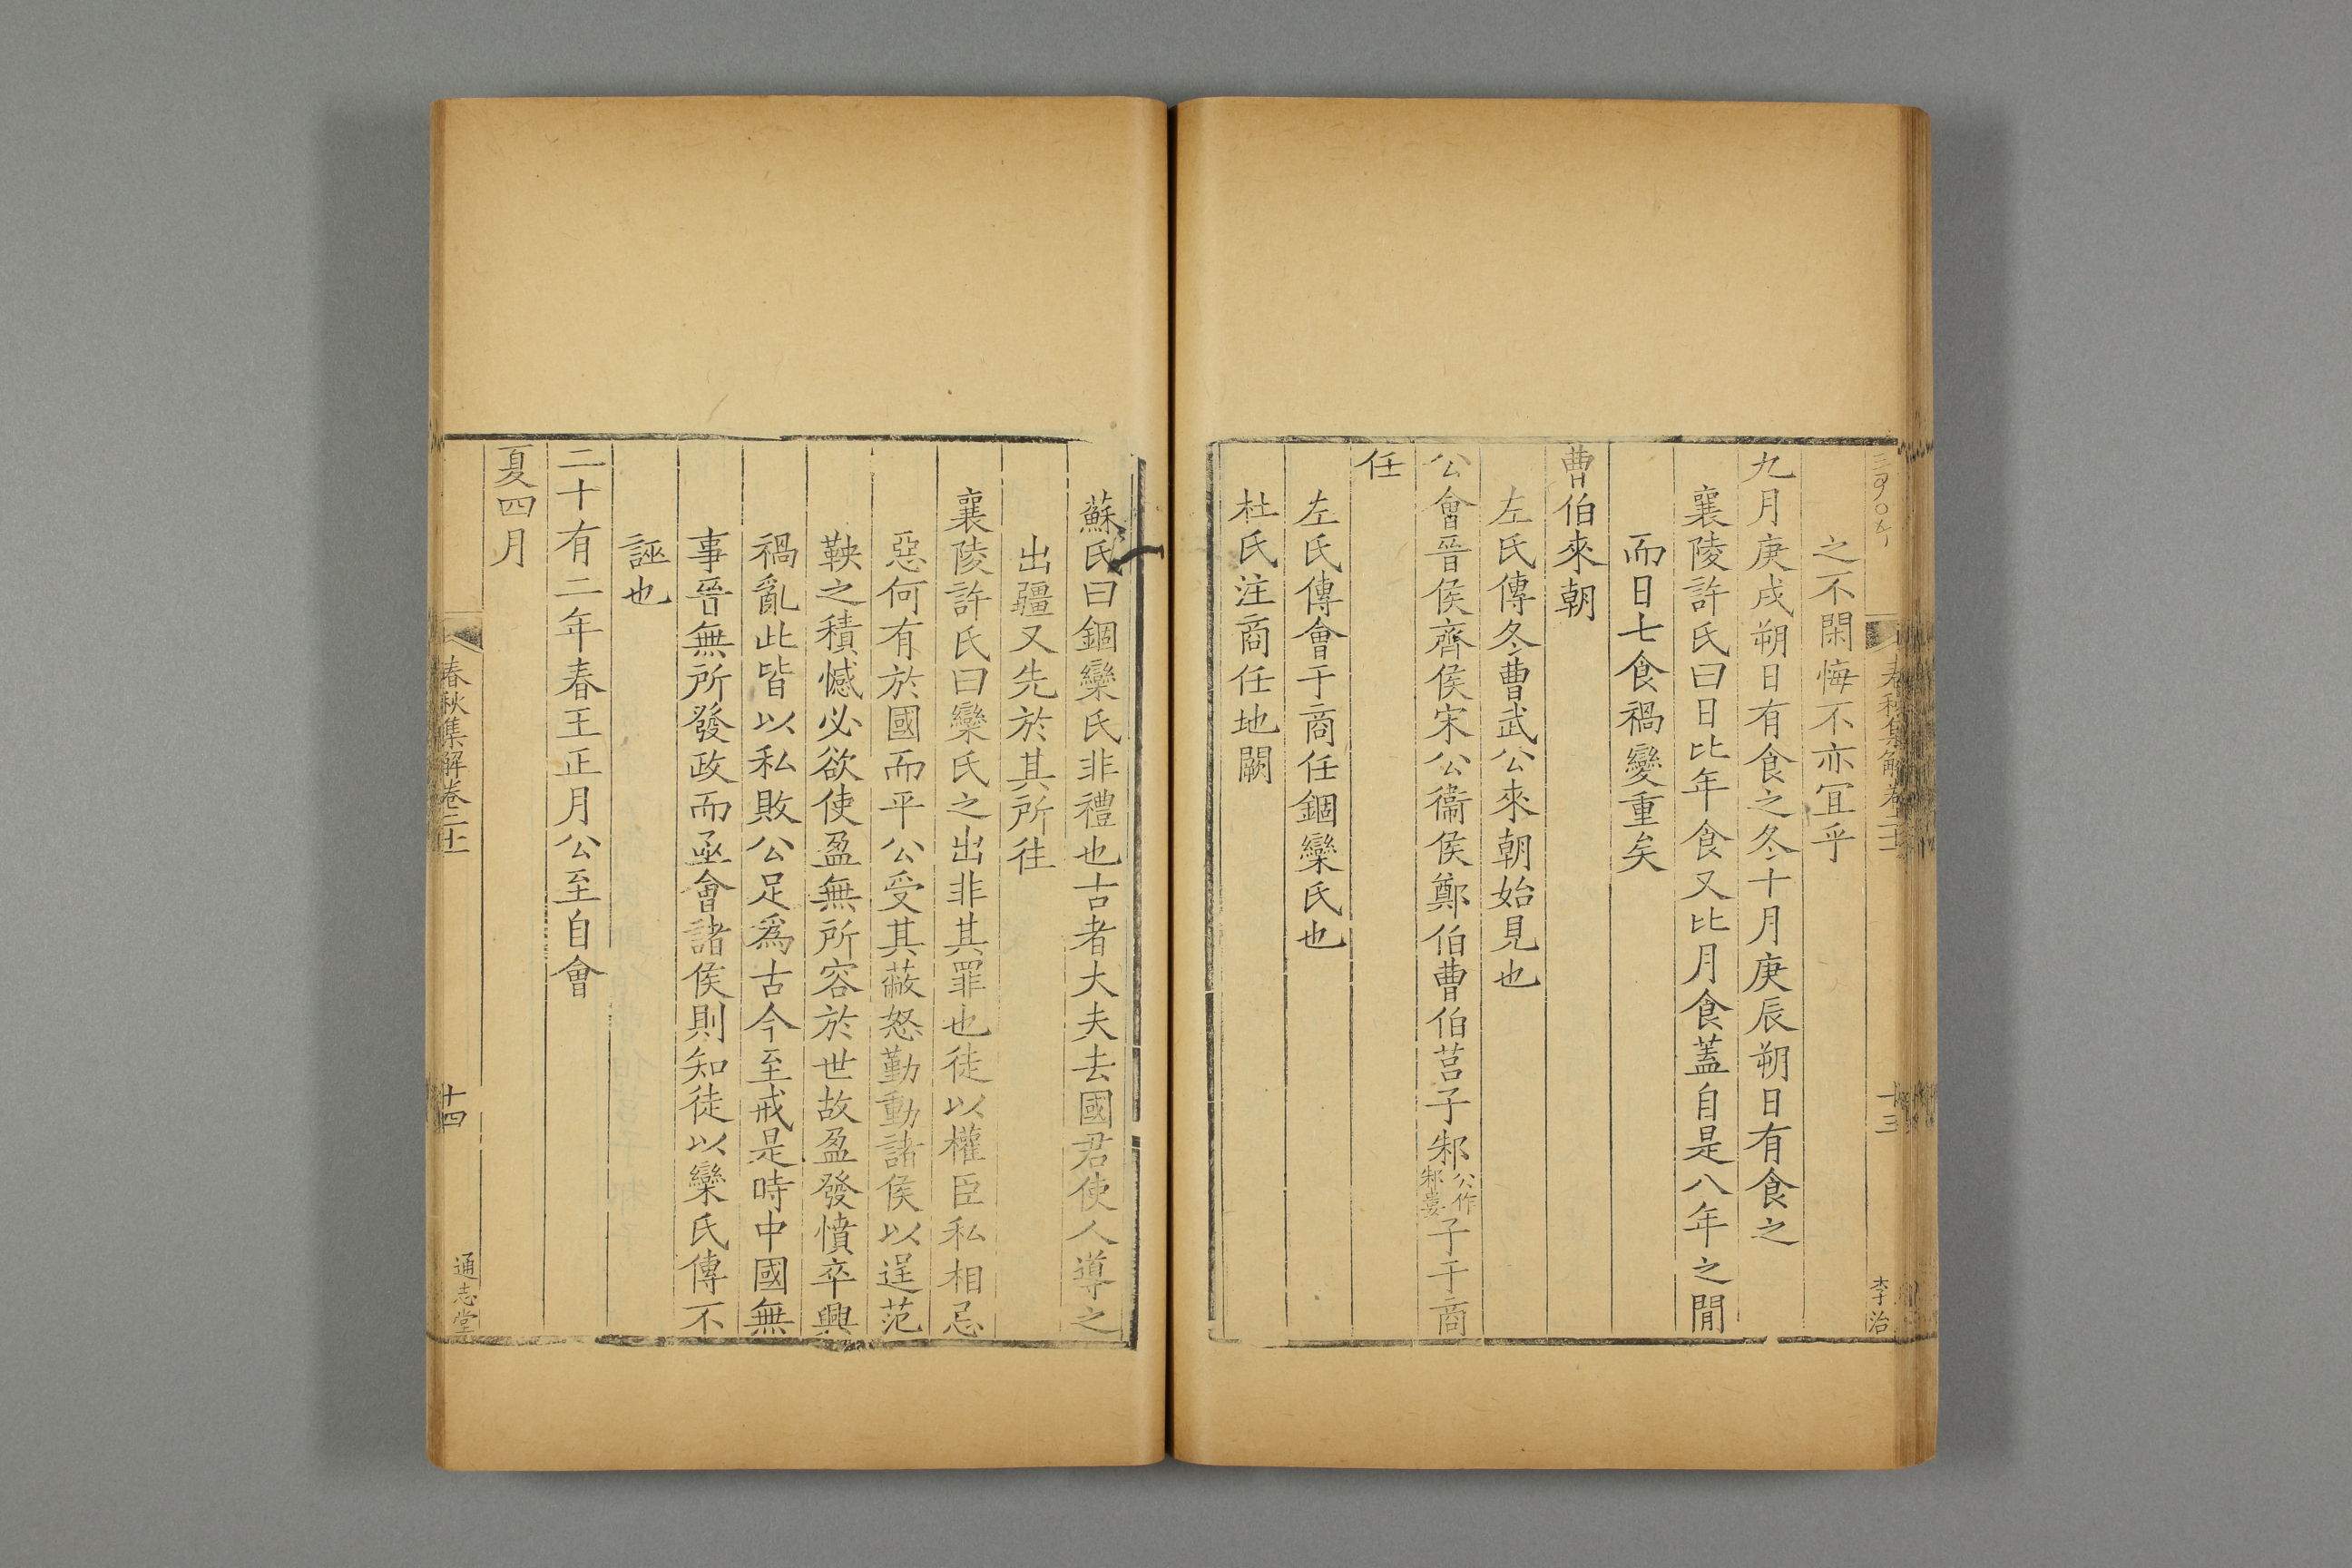 春秋集解卷二十一
十三
李治
之不閑悔不亦宜乎
九月庚戌朔日有食之冬十月庚辰朔日有食之
襄陵許氏曰日比年食又比月食蓋自是八年之閒
而日七食禍變重矣
曹伯來朝
左氏傳冬曹武公來朝始見也
公會晉侯齊侯宋公衞侯鄭伯曹伯莒子邾公作邾婁子于商
任
左氏傳會于商任錮欒氏也
杜氏注商任地闕
蘇氏曰錮欒氏非禮也古者大夫去國君使人導之
出疆又先於其所往
襄陵許氏曰欒氏之出非其罪也徒以權臣私相忌
惡何有於國而平公受其蔽怒勤動諸侯以逞范
鞅之積憾必欲使盈無所容於世故盈發憤卒興
禍亂此皆以私敗公足爲古今至戒是時中國無
事晉無所發政而亟會諸侯則知徒以欒氏傳不
誣也
二十有二年春王正月公至自會
夏四月
春秋集解卷二十一
十四
通志堂